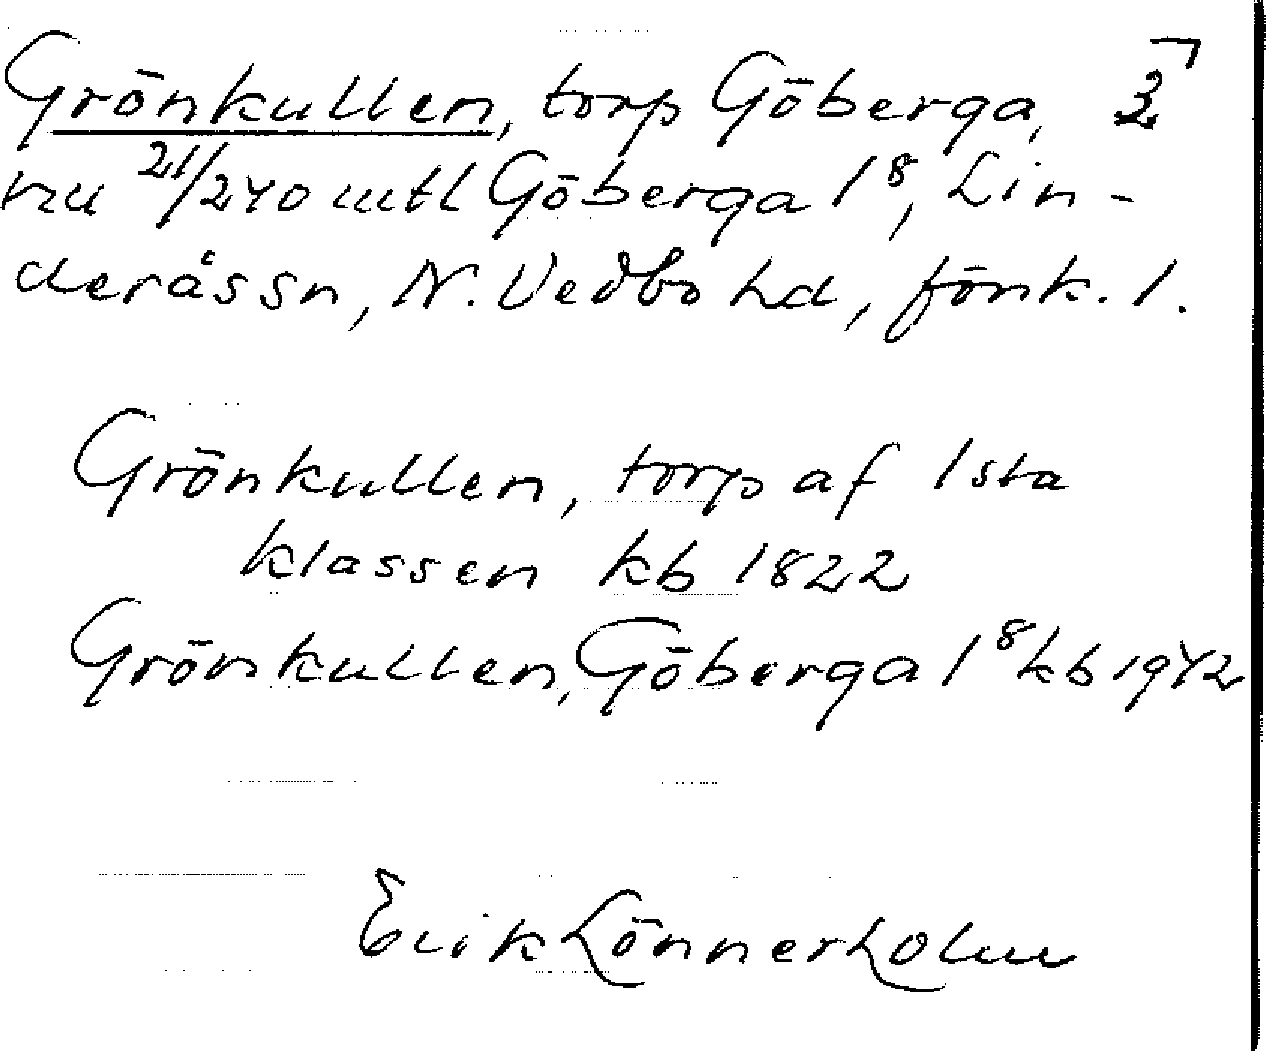 Grönkullen, torp Göberga,
nu 21/240 mtl Göberga 1⁸, Lin-
derås sn, N. Vedbo hd, Jönk. l.
Grönkullen, torp af 1sta
klassen kb 1822
Grönkullen, Göberga 1⁸ kb 1942
Erik Lönnerholm